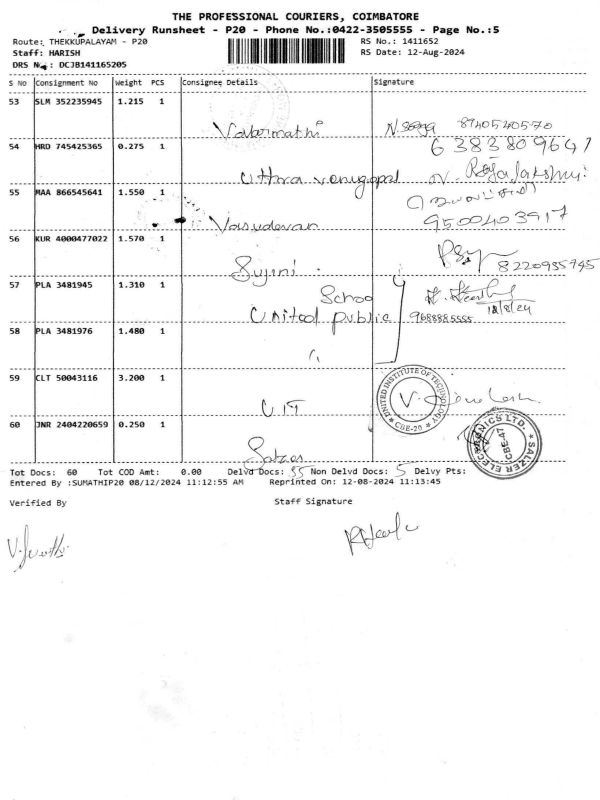 THE PROFESSIONAL COURIERS, COIMBATORE
Delivery Runsheet - P20 - Phone No.:0422-3505555 - Page No.:5
Route: THEKKUPALAYAM - P20
RS No.: 1411652
Staff: HARISH
RS Date: 12-Aug-2024
DRS No.: DCJB141165205
S No Consignment No Weight PCS Consignee Details Signature
53 SLM 352235945 1.215 1
8940540570
54 HRD 745425365 0.275 1 Uthra venugopal
6383809641
55 MAA 866545641 1.550 1 Vasudevan
9500403917
56 KUR 4000477022 1.570 1 Sujini
8220935945
57 PLA 3481945 1.310 1 School
United public
9688885555
12/8/24
58 PLA 3481976 1.480 1
59 CLT 50043116 3.200 1 UIT
UNITED INSTITUTE OF TECHNOLOGY
CBE-20
60 JNR 2404220659 0.250 1
SALZER ELECTRONICS LTD.
CBE-47
Tot Docs: 60 Tot COD Amt: 0.00 Delvd Docs: 55 Non Delvd Docs: 5 Delvy Pts:
Entered By :SUMATHIP20 08/12/2024 11:12:55 AM Reprinted On: 12-08-2024 11:13:45
Verified By Staff Signature